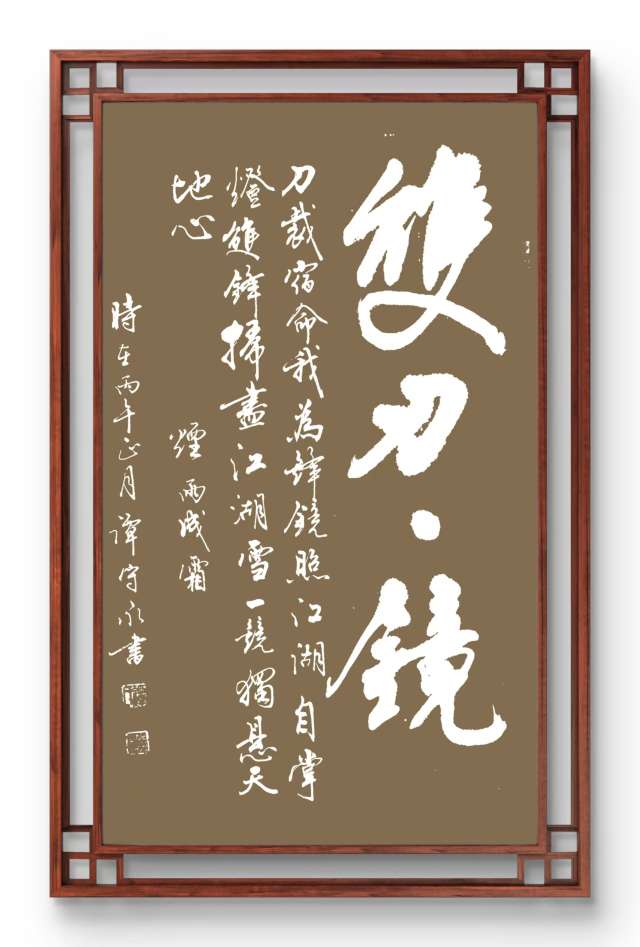 雙刀·鏡
刀裁宿命我為鋒鏡照江湖自掌
燈雙鋒掃盡江湖雪一鏡獨懸天
地心
煙雨成霜
時在丙午正月譚守永書